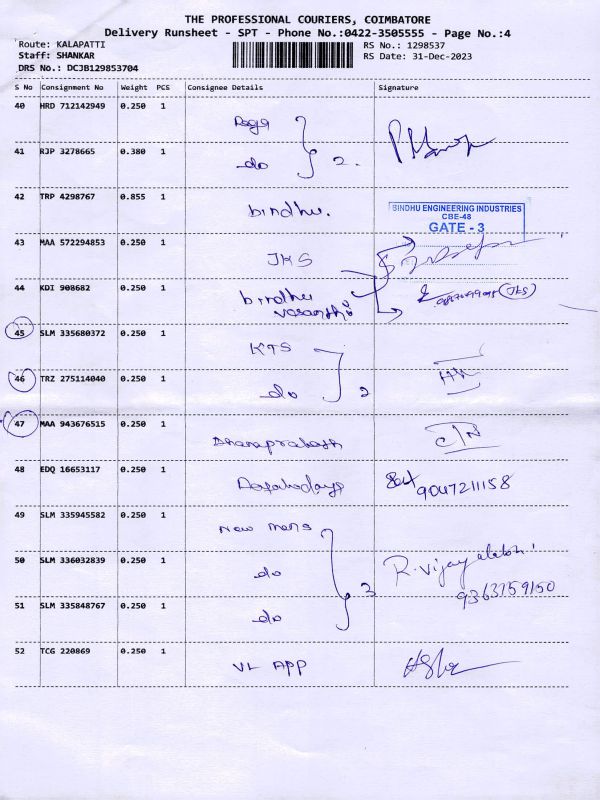 THE PROFESSIONAL COURIERS, COIMBATORE
Delivery Runsheet - SPT - Phone No.:0422-3505555 - Page No.:4
Route: KALAPATTI
RS No.: 1298537
Staff: SHANKAR
RS Date: 31-Dec-2023
DRS No.: DCJB129853704
S No Consignment No Weight PCS Consignee Details Signature
40 HRD 712142949 0.250 1
41 RJP 3278665 0.380 1 do 2.
42 TRP 4298767 0.855 1 bindhu.
BINDHU ENGINEERING INDUSTRIES
CBE-48
GATE - 3
43 MAA 572294853 0.250 1 JKS
44 KDI 908682 0.250 1 bindhu
(JKS)
45 SLM 335680372 0.250 1 KTS
46 TRZ 275114040 0.250 1 do 2
47 MAA 943676515 0.250 1
48 EDQ 16653117 0.250 1 9047211158
49 SLM 335945582 0.250 1 New mens
50 SLM 336032839 0.250 1 do 3 R. Vijayalakshmi
9363759150
51 SLM 335848767 0.250 1 do
52 TCG 220869 0.250 1 VL APP